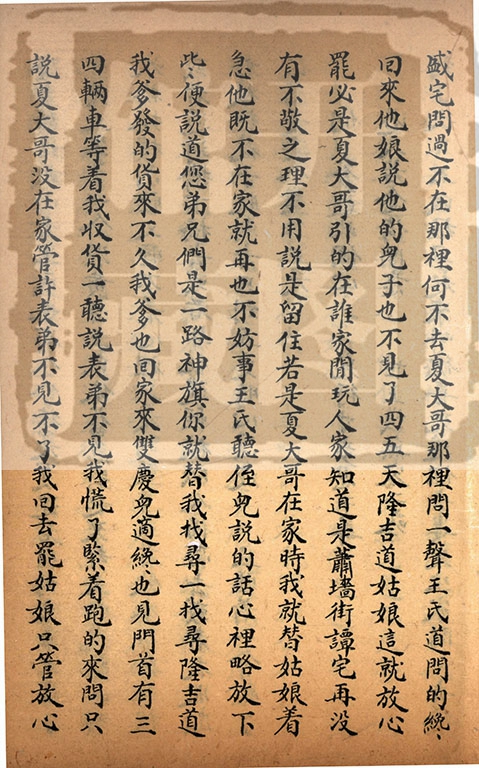 盛宅問過不在那裡何不去夏大哥那裡問一聲王氏道問的纔纔
回來他娘說他的兒子也不見了四五天隆吉道姑娘這就放心
罷必是夏大哥引的在誰家閒玩人家知道是蕭墻街譚宅再没
有不敬之理不用說是留住若是夏大哥在家時我就替姑娘着
急他既不在家就再也不妨事王氏聽侄兒說的話心裡略放下
些便說道您弟兄們是一路神旗你就替我找尋一找尋隆吉道
我爹發的貨來不久我爹也回家來雙慶兒適纔也見門首有三
四輛車等着我収貨一聽說表弟不見我慌了緊着跑的來問只
說夏大哥没在家管許表弟不見不了我回去罷姑娘只管放心